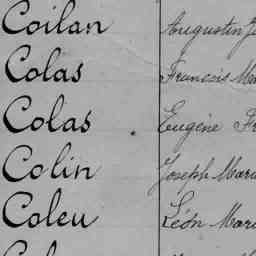 Coilan Augustin
Colas Francois
Colas Eugène
Colin Joseph
Coleu Léon